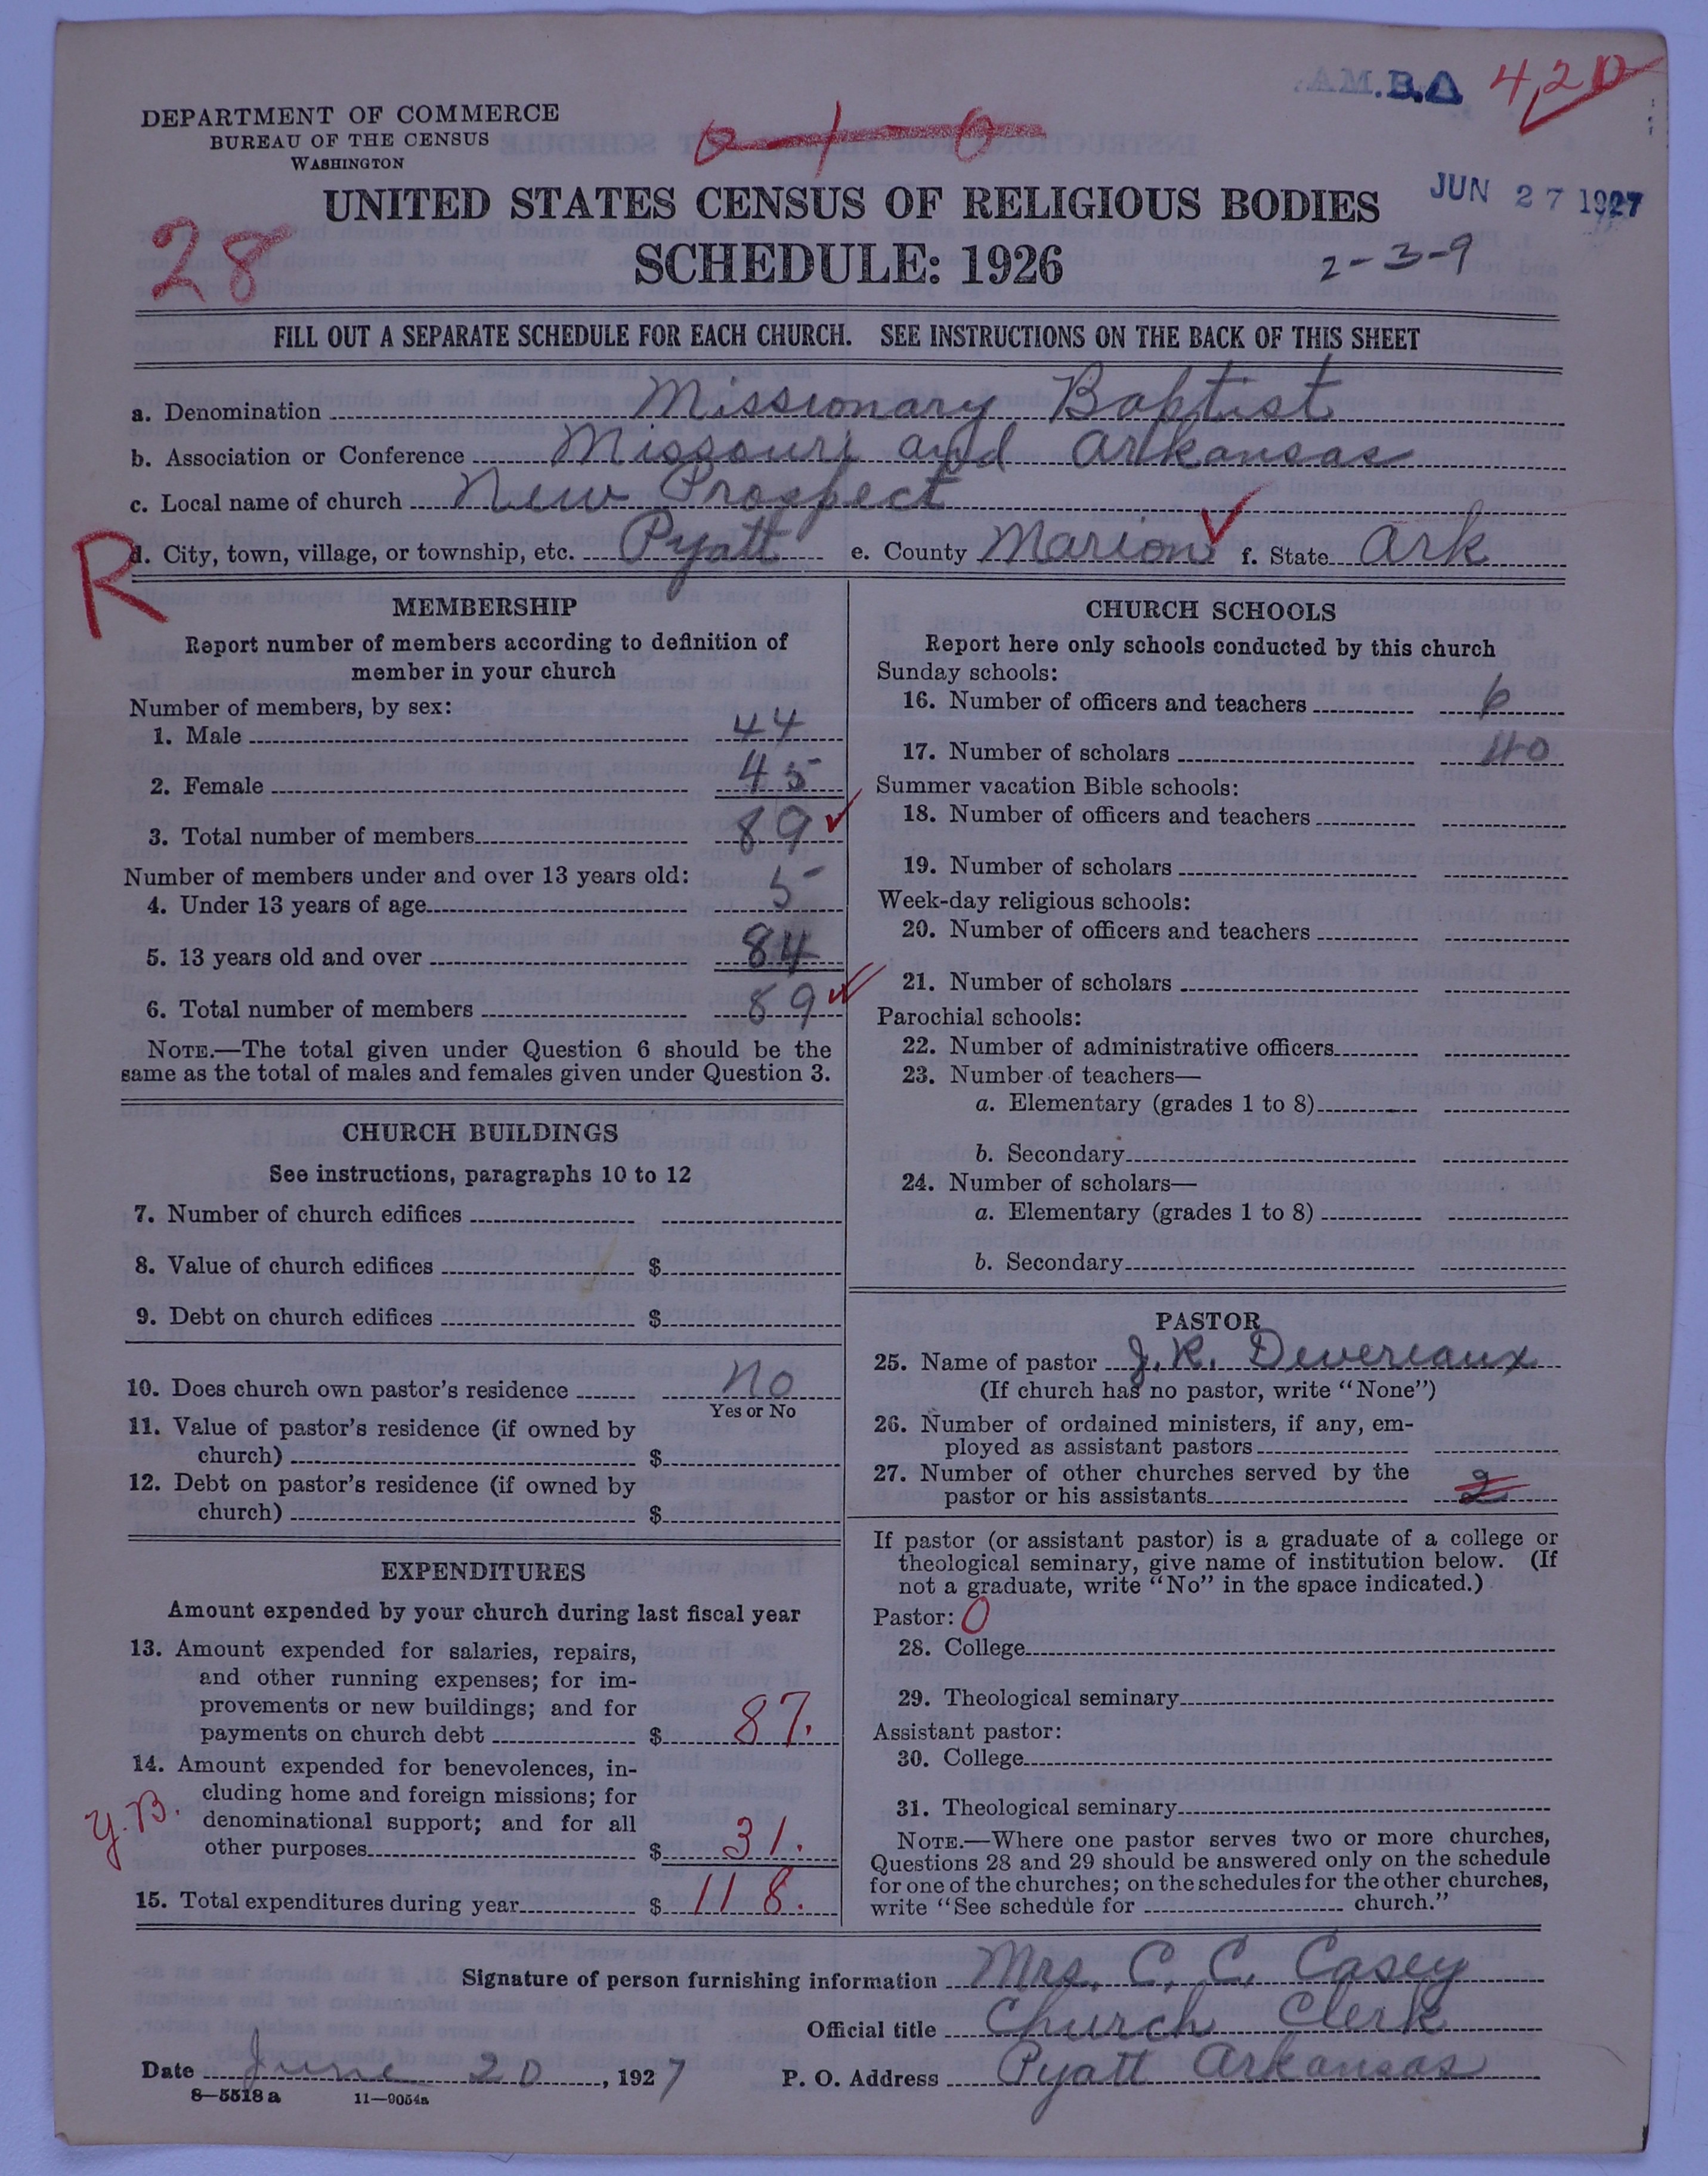 .B.A 420
DEPARTMENT OF COMMERCE
BUREAU OF THE CENSUS
WASHINGTON
UNITED STATES CENSUS OF RELIGIOUS BODIES
JUN 27 1927
28
SCHEDULE: 1926
2-3-9
FILL OUT A SEPARATE SCHEDULE FOR EACH CHURCH. SEE INSTRUCTIONS ON THE BACK OF THIS SHEET
a. Denomination Missionary Baptist
b. Association or Conference Missouri and Arkansas
c. Local name of church New Prospect
R
d. City, town, village, or township, etc. Pyatt e. County Marion f. State Ark
MEMBERSHIP
Report number of members according to definition of
member in your church
Number of members, by sex:
1. Male 44
2. Female 45
3. Total number of members 89
Number of members under and over 13 years old:
4. Under 13 years of age 5
5. 13 years old and over 84
6. Total number of members 89
NOTE.—The total given under Question 6 should be the
same as the total of males and females given under Question 3.
CHURCH BUILDINGS
See instructions, paragraphs 10 to 12
7. Number of church edifices
8. Value of church edifices $
9. Debt on church edifices $
10. Does church own pastor's residence No
Yes or No
11. Value of pastor's residence (if owned by
church) $
12. Debt on pastor's residence (if owned by
church) $
EXPENDITURES
Amount expended by your church during last fiscal year
13. Amount expended for salaries, repairs,
and other running expenses; for im-
provements or new buildings; and for
payments on church debt $ 87.
14. Amount expended for benevolences, in-
cluding home and foreign missions; for
Y.B. denominational support; and for all
other purposes $ 31.
15. Total expenditures during year $ 118.
CHURCH SCHOOLS
Report here only schools conducted by this church
Sunday schools:
16. Number of officers and teachers 6
17. Number of scholars 40
Summer vacation Bible schools:
18. Number of officers and teachers
19. Number of scholars
Week-day religious schools:
20. Number of officers and teachers
21. Number of scholars
Parochial schools:
22. Number of administrative officers
23. Number of teachers—
a. Elementary (grades 1 to 8)
b. Secondary
24. Number of scholars—
a. Elementary (grades 1 to 8)
b. Secondary
PASTOR
25. Name of pastor J. R. Devereaux
(If church has no pastor, write "None")
26. Number of ordained ministers, if any, em-
ployed as assistant pastors
27. Number of other churches served by the
pastor or his assistants 2
If pastor (or assistant pastor) is a graduate of a college or
theological seminary, give name of institution below. (If
not a graduate, write "No" in the space indicated.)
Pastor: 0
28. College
29. Theological seminary
Assistant pastor:
30. College
31. Theological seminary
NOTE.—Where one pastor serves two or more churches,
Questions 28 and 29 should be answered only on the schedule
for one of the churches; on the schedules for the other churches,
write "See schedule for church."
Signature of person furnishing information Mrs. C. C. Casey
Official title Church Clerk
Date June 20, 1927 P. O. Address Pyatt Arkansas
8—5518a 11—9054a